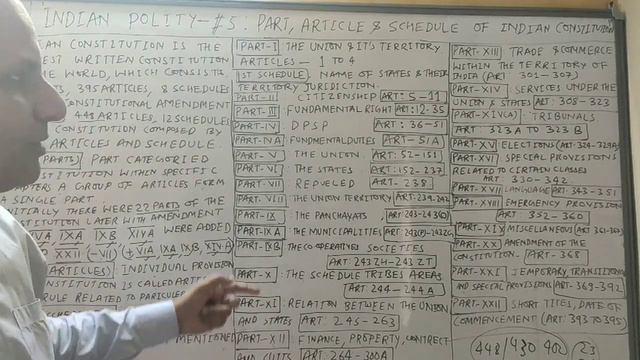 INDIAN POLITY-#5: PART, ARTICLE & SCHEDULE OF INDIAN CONSTITUTION
AN CONSTITUTION IS THE
EST WRITTEN CONSTITUTION
E WORLD, WHICH CONSISTS
TS, 395 ARTICLES, 8 SCHEDULES
ONSTITUTIONAL AMENDMENT
448 ARTICLES, 12 SCHEDULES
CONSTITUTION COMPOSED BY
ARTICLES AND SCHEDULE.
PARTS) PART CATEGORIED
STITUTION WITHIN SPECIFIC
A GROUP OF ARTICLES FORM
A SINGLE PART
THERE WERE 22 PARTS OF THE
STITUTION LATER WITH AMENDMENT
IVA, IXA, IXB, XIVA WERE ADDED
XXII (-VII) (+ IVA, IXA, IXB, XIV-A)
ARTICLES) INDIVIDUAL PROVISION
NSTITUTION IS CALLED
RULE RELATED TO
MENTIONED
PART-I : THE UNION & IT'S TERRITORY
ARTICLES - 1 TO 4
1ST SCHEDULE) NAME OF STATES & THEIR
TERRITORY JURIDICTION.
PART-II : CITIZENSHIP ART: 5-11
PART III : FUNDAMENTAL RIGHT ART: 12-35
PART-IV : DPSP ART: 36-51
PART-IVA : FUNDAMENTAL DUTIES ART-51A
PART-V : THE UNION. ART: 52-151
PART-VI : THE STATES. ART: 152-237
PART-VII : REPUELED ART-238
PART-VIII : THE UNION TERRITORY ART: 239-242
PART-IX : THE PANCHAYATS ART: 243-243(O)
PART-IXA : THE MUNICIPALITIES ART: 243(P)-243ZG
PART-IXB : THE CO-OPERATIVES SOCIETIES
ART: 243ZH-243ZT
PART-X : THE SCHEDULE TRIBES AREAS
ART: 244-244A
PART-XI : RELATION BETWEEN THE UNION
AND STATES ART: 245-263
PART-XII : FINANCE, PROPERTY, CONTRECT
AND ART: 264-300A
PART-XIII : TRADE & COMMERCE
WITHIN THE TERRITORY OF
INDIA (ART 301-307)
PART-XIV : SERVICES UNDER THE
UNION & STATES ART: 308-323
PART-XIV(A) : TRIBUNALS
ART: 323A TO 323B
PART-XV ELECTIONS (ART-324-329A)
PART-XVI SPECIAL PROVISIONS
RELATED TO CERTAIN CLASSES
ART 330-342
PART-XVII LANGUAGE ART 343-351
PART-XVIII EMERGENCY PROVISION
ART 352-360
PART-XIX MISCELLANEOUS ART 361-367
PART-XX AMENDMENT OF THE
CONSTITUTION ART-368
PART-XXI : TEMPORARY, TRANSITIONAL
AND SPECIAL PROVISIONS ART: 369-392
PART-XXII SHORT TITLES, DATE OF
COMMENCEMENT (ART: 393 TO 395)
448/430